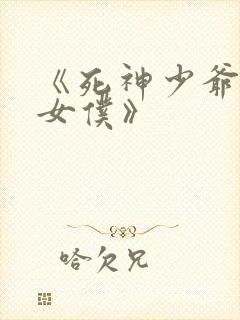 《死神少爷
女僕》
哈欠兄